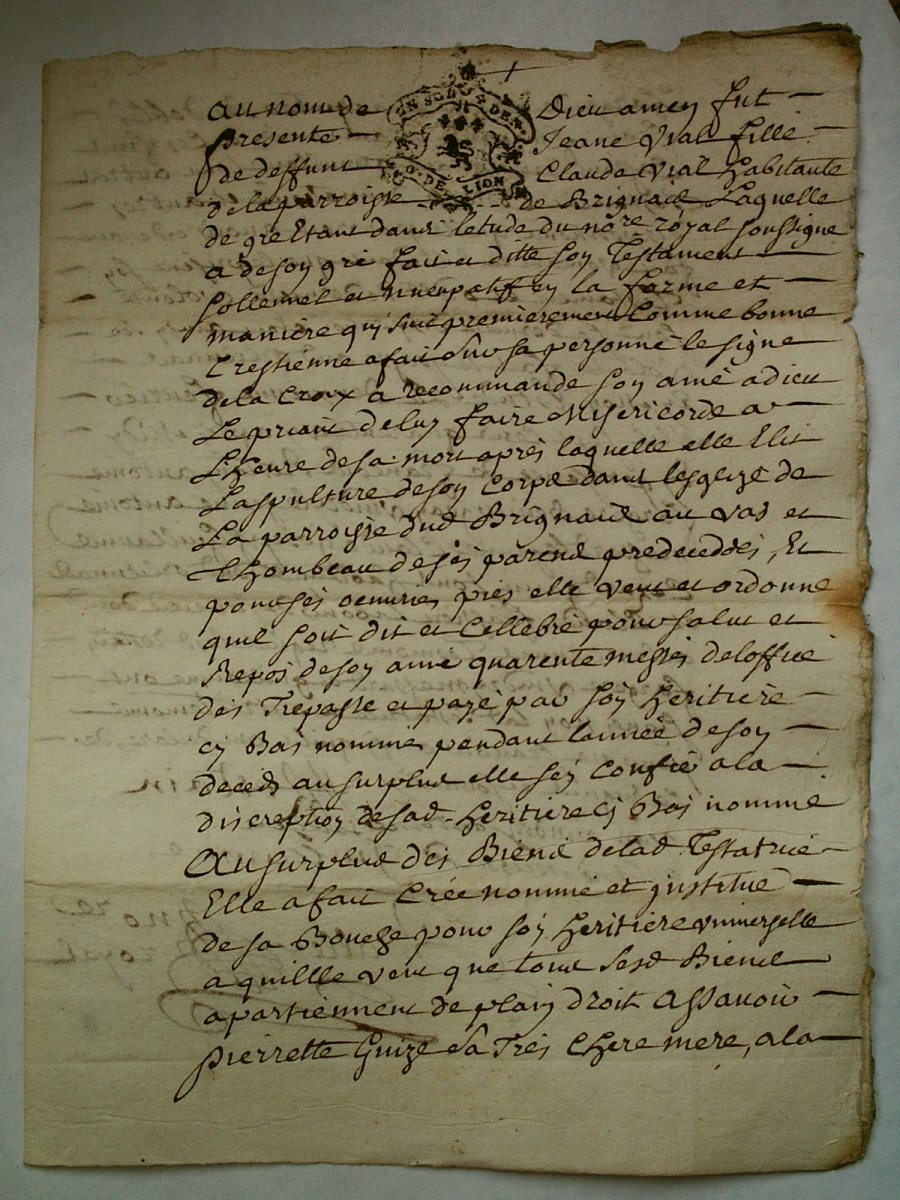 au nom de Dieu amen fut
presente Jeane Vial fille
de deffunt Claude Vial Habitante
de la parroisse de Brignaid Laquelle
de gre Etant dans letude du nore royal soussigne
a de son gré fait et ditte son Testament
sollennel et nuncupatiff en la forme et
maniere quj suit premierement Comme bonne
Crestienne a fait sur sa personne le signe
de la Croix a recommande son ame a dieu
Le priant de luy faire Misericorde a
LHeure de sa mort apres laquelle elle Elit
La spulture de son Corps dans lesglize de
La parroisse dud Brignaid au vas et
thombeau de ses parens predecedés, Et
pour ses oeuvries pies elle veut et ordonne
quil soit dit et Cellebré pour salut et
Repos de son ame quarente messes de loffice
des Trepasse et payé par son Heritiere
cy Bas nommé pendant lannée de son
deceds au surplus elle sen Confie a la
discreption de sad. Heritiere cj Bas nommé
Au surplus des Biens de lad Testatrice
Elle a fait Créé nommé et jnstitue
de sa Bouche pour son Heritiere vniverselle
a quillle veut que tous sesd Biens
apartiennent de plain droit Assavoir
pierrette Guize sa Tres Chere mere, a la
EN SOLS DEN.
G. DE LION